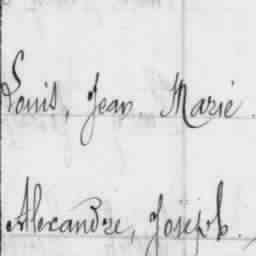 Louis, Jean Marie.
Alexandre, Joseph.